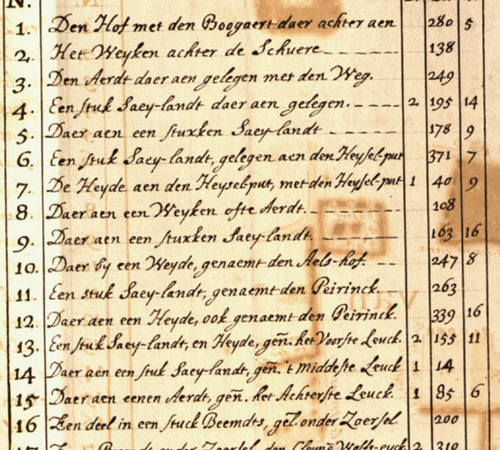 N.
1. Den Hof met den Boogaert daer achter aen 280 5
2. Het Weyken achter de Schuere 138
3. Den Aerdt daer aen gelegen met den Weg. 249
4. Een stuk Saey-landt daer aen gelegen. 2 195 14
5. Daer aen een stuxken Saey-landt 178 9
6. Een stuk Saey-landt, gelegen aen den Heysel-put 371 7
7. De Heyde aen den Heysel-put, met den Heysel-put 1 40 9
8. Daer aen een Weyken ofte Aerdt. 108
9. Daer aen een stuxken Saey-landt. 163 16
10. Daer by een Weyde, genaemt den Aels-hof. 247 8
11. Een stuk Saey-landt, genaemt den Peirinck. 263
12. Daer aen een Heyde, ook genaemt den Peirinck. 339 16
13. Een stuk Saey-landt, en Heyde, geñ. het Voorste Leuck. 2 155 11
14 Daer aen een stuk Saey-landt, geñ. t Middeste Leuck 1 14
15 Daer aen eenen Aerdt, geñ. het Achterste Leuck. 1 85 6
16 Een deel in een stuck Beemdts, gel. onder Zoersel. 200
17 Een Beemdt onder Zoersel, den 2 310